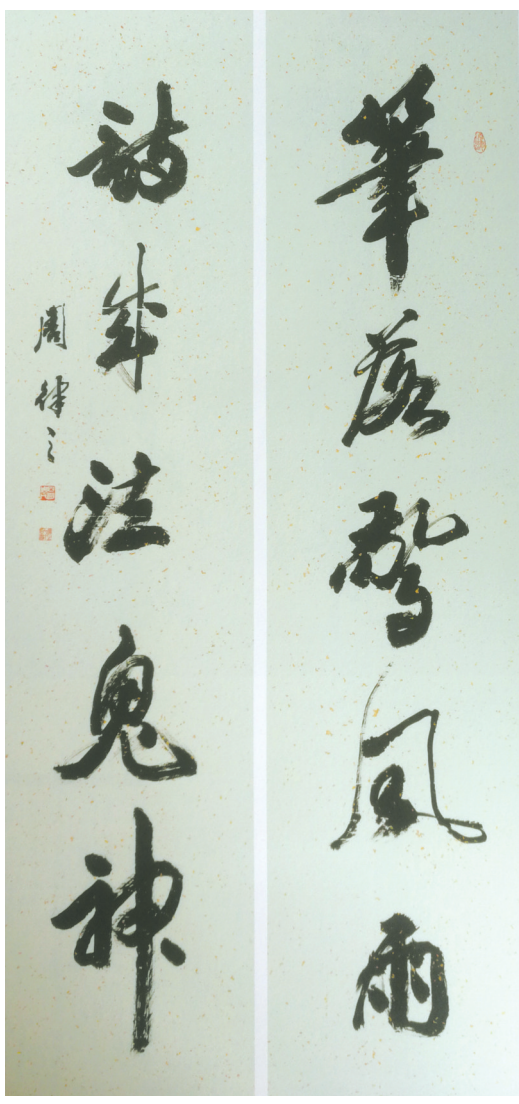 筆落驚風雨
詩成泣鬼神
周之